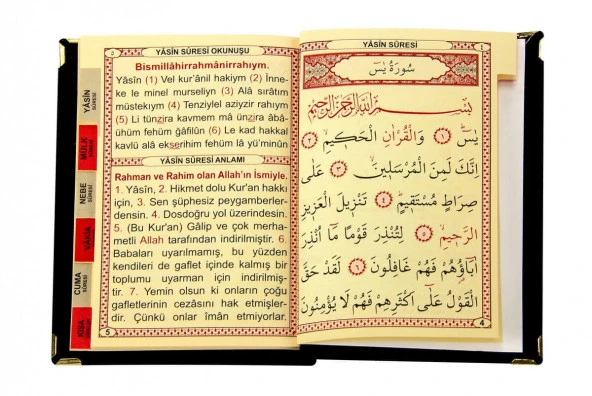 ٥ YÂSÎN SÛRESİ OKUNUŞU
Bismillâhirrahmânirrahıym.
Yâsîn (1) Vel kur'ânil hakiym (2) İnne-
ke le minel murseliyn (3) Alâ sırâtım
müstekıym (4) Tenziylel aziyzir rahıym
(5) Li tünzira kavmem mâ ünzira âbâ-
ühüm fehüm ğâfilûn (6) Le kad hakkal
kavlü alâ ekserihim fehüm lâ yü'minûn
YÂSÎN SÛRESİ ANLAMI
Rahman ve Rahim olan Allah'ın İsmiyle.
1. Yâsîn, 2. Hikmet dolu Kur'an hakkı
için, 3. Sen şüphesiz peygamberler-
densin. 4. Dosdoğru yol üzerindesin.
5. (Bu Kur'an) Gâlip ve çok merha-
metli Allah tarafından indirilmiştir. 6.
Babaları uyarılmamış, bu yüzden
kendileri de gaflet içinde kalmış bir
toplumu uyarman için indirilmiş-
tir. 7. Yemin olsun ki onların çoğu
gafletlerinin cezasını hak etmişler-
dir. Çünkü onlar îman etmiyorlar.
5
YÂSÎN SÛRESİ
MÜLK SÛRESİ
NEBE SÛRESİ
VÂKIA SÛRESİ
CUMA SÛRESİ
KISA
YÂSÎN SÛRESİ ٤
سُورَةُ يٰسٓ
بِسْمِ اللّٰهِ الرَّحْمٰنِ الرَّحِيمِ
يٰسٓ ۝١ وَالْقُرْاٰنِ الْحَكِيمِۙ ۝٢
اِنَّكَ لَمِنَ الْمُرْسَلِينَۙ ۝٣ عَلٰى
صِرَاطٍ مُسْتَقِيمٍۜ ۝٤ تَنْزِيلَ الْعَزِيزِ
الرَّحِيمِۙ ۝٥ لِتُنْذِرَ قَوْمًا مَٓا اُنْذِرَ
اٰبَٓاؤُ۬هُمْ فَهُمْ غَافِلُونَ ۝٦ لَقَدْ حَقَّ
الْقَوْلُ عَلٰٓى اَكْثَرِهِمْ فَهُمْ لَا يُؤْمِنُونَ
4